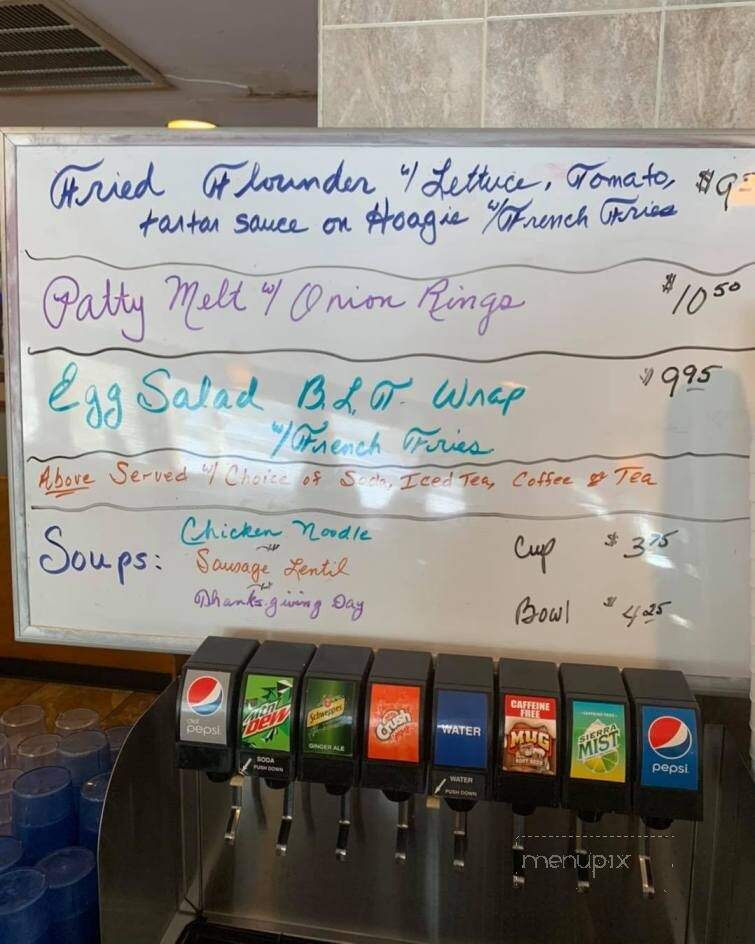 Fried Flounder w/ Lettuce, Tomato, $9
tartar sauce on Hoagie w/ French Fries
Patty Melt w/ Onion Rings $10 50
Egg Salad B.L.T. Wrap $9 95
w/ French Fries
Above Served w/ Choice of Soda, Iced Tea, Coffee or Tea
Soups: Chicken Noodle Cup $3 75
Sausage Lentil
Thanksgiving Day Bowl $4 25
diet pepsi
Mtn Dew
SODA
PUSH DOWN
Schweppes
GINGER ALE
Crush
WATER
WATER
PUSH DOWN
CAFFEINE FREE
MUG
ROOT BEER
CAFFEINE FREE
SIERRA MIST
pepsi
menupix